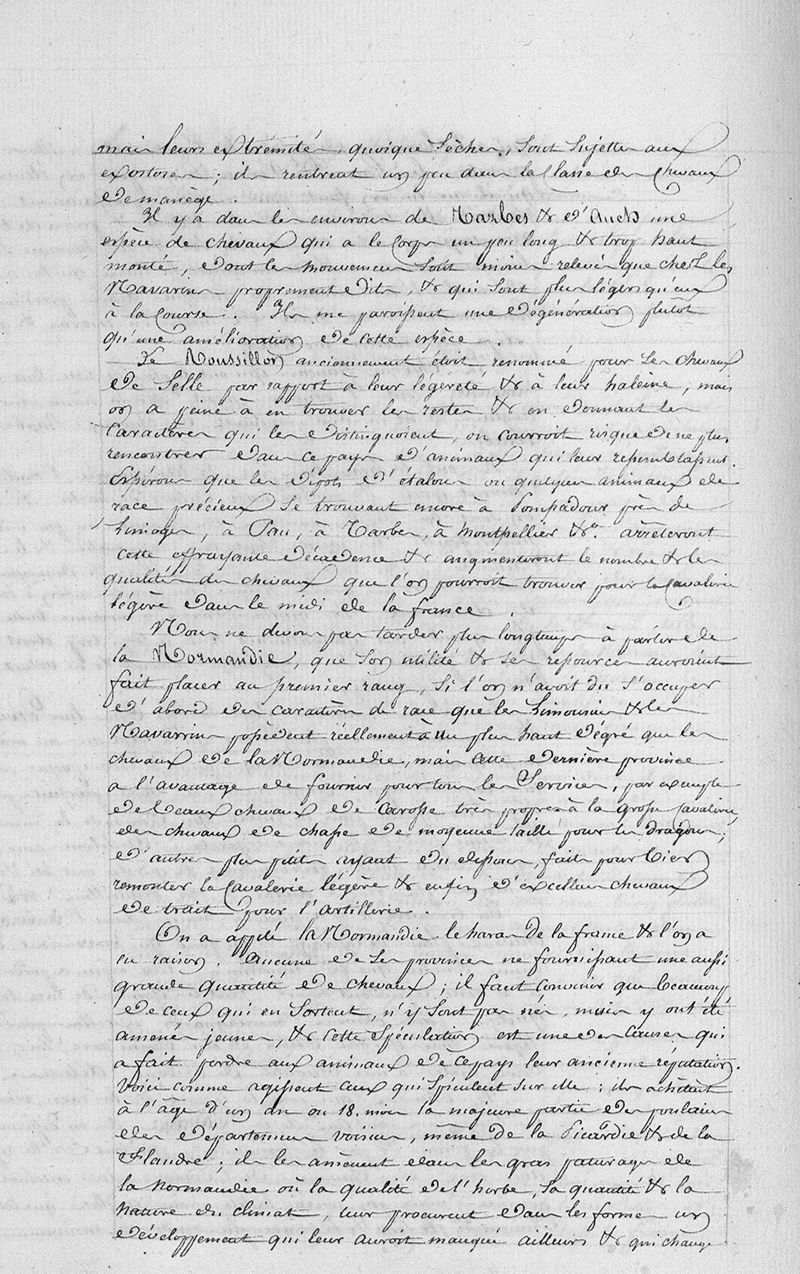 mais leurs extrémités, quoique sèches, sont sujettes aux
exostoses ; ils rentrent un peu dans la Classe des Chevaux
de manège.
Il y a dans les environs de Tarbes & d'Auch une
espèce de chevaux qui a le Corps un peu long & trop haut
monté, dont les mouvemens sont moins relevés que chez les
Navarins proprement dits, & qui sont plus légers qu'eux
à la Course. Ils me paroissent une dégénération plutôt
qu'une amélioration de cette espèce.
Le Roussillon anciennement étoit renommé pour ses chevaux
de Selle par rapport à leur légèreté & à leur haleine, mais
on a peine à en trouver les restes & en donnant les
Caractères qui les distinguoient, on courroit risque de ne plus
rencontrer dans ce pays d'animaux qui leur ressemblassent.
Espérons que les dépots d'étalons ou quelques animaux de
race précieux se trouvant encore à Pompadour près de
Limoges, à Pau, à Tarbes, à Montpellier &a. arrêteront
cette effrayante décadence & augmenteront le nombre & les
qualités des chevaux que l'on pourroit trouver pour la Cavalerie
légère dans le midi de la france.
Nous ne devons pas tarder plus longtemps à parler de
la Normandie, que son utilité & ses ressources auroient
fait placer au premier rang, si l'on n'avoit du s'occuper
d'abord des caractères de race que les Limousins & les
Navarrins possèdent réellement à un plus haut dégré que les
chevaux de la Normandie, mais cette dernière province
a l'avantage de fournir pour tous les Services, par exemple
de beaux chevaux de carosse très propres à la grosse Cavalerie,
des chevaux de chasse de moyenne taille pour les dragons ;
d'autres plus petits ayant du dessous, faits pour bien
remonter la Cavalerie légère & enfin d'excellens chevaux
de trait pour l'artillerie.
On a appelé la Normandie le haras de la france & l'on a
eu raison. Aucune de ses provinces ne fournissant une aussi
grande quantité de chevaux ; il faut convenir que beaucoup
de ceux qui en sortent, n'y sont pas nés, mais y ont été
amenés jeunes, & cette spéculation est une des causes qui
a fait perdre aux animaux de ce pays leur ancienne réputation.
Voici comme agissent ceux qui spéculent sur elle ; ils achètent
à l'âge d'un an ou 18. mois la majeure partie des poulains
des départemens voisins, même de la Picardie & de la
Flandre ; ils les amènent dans les gras paturages de
la Normandie où la qualité de l'herbe, sa quantité & la
nature du climat, leur procurent dans les formes un
développement qui leur auroit manqué ailleurs & qui change